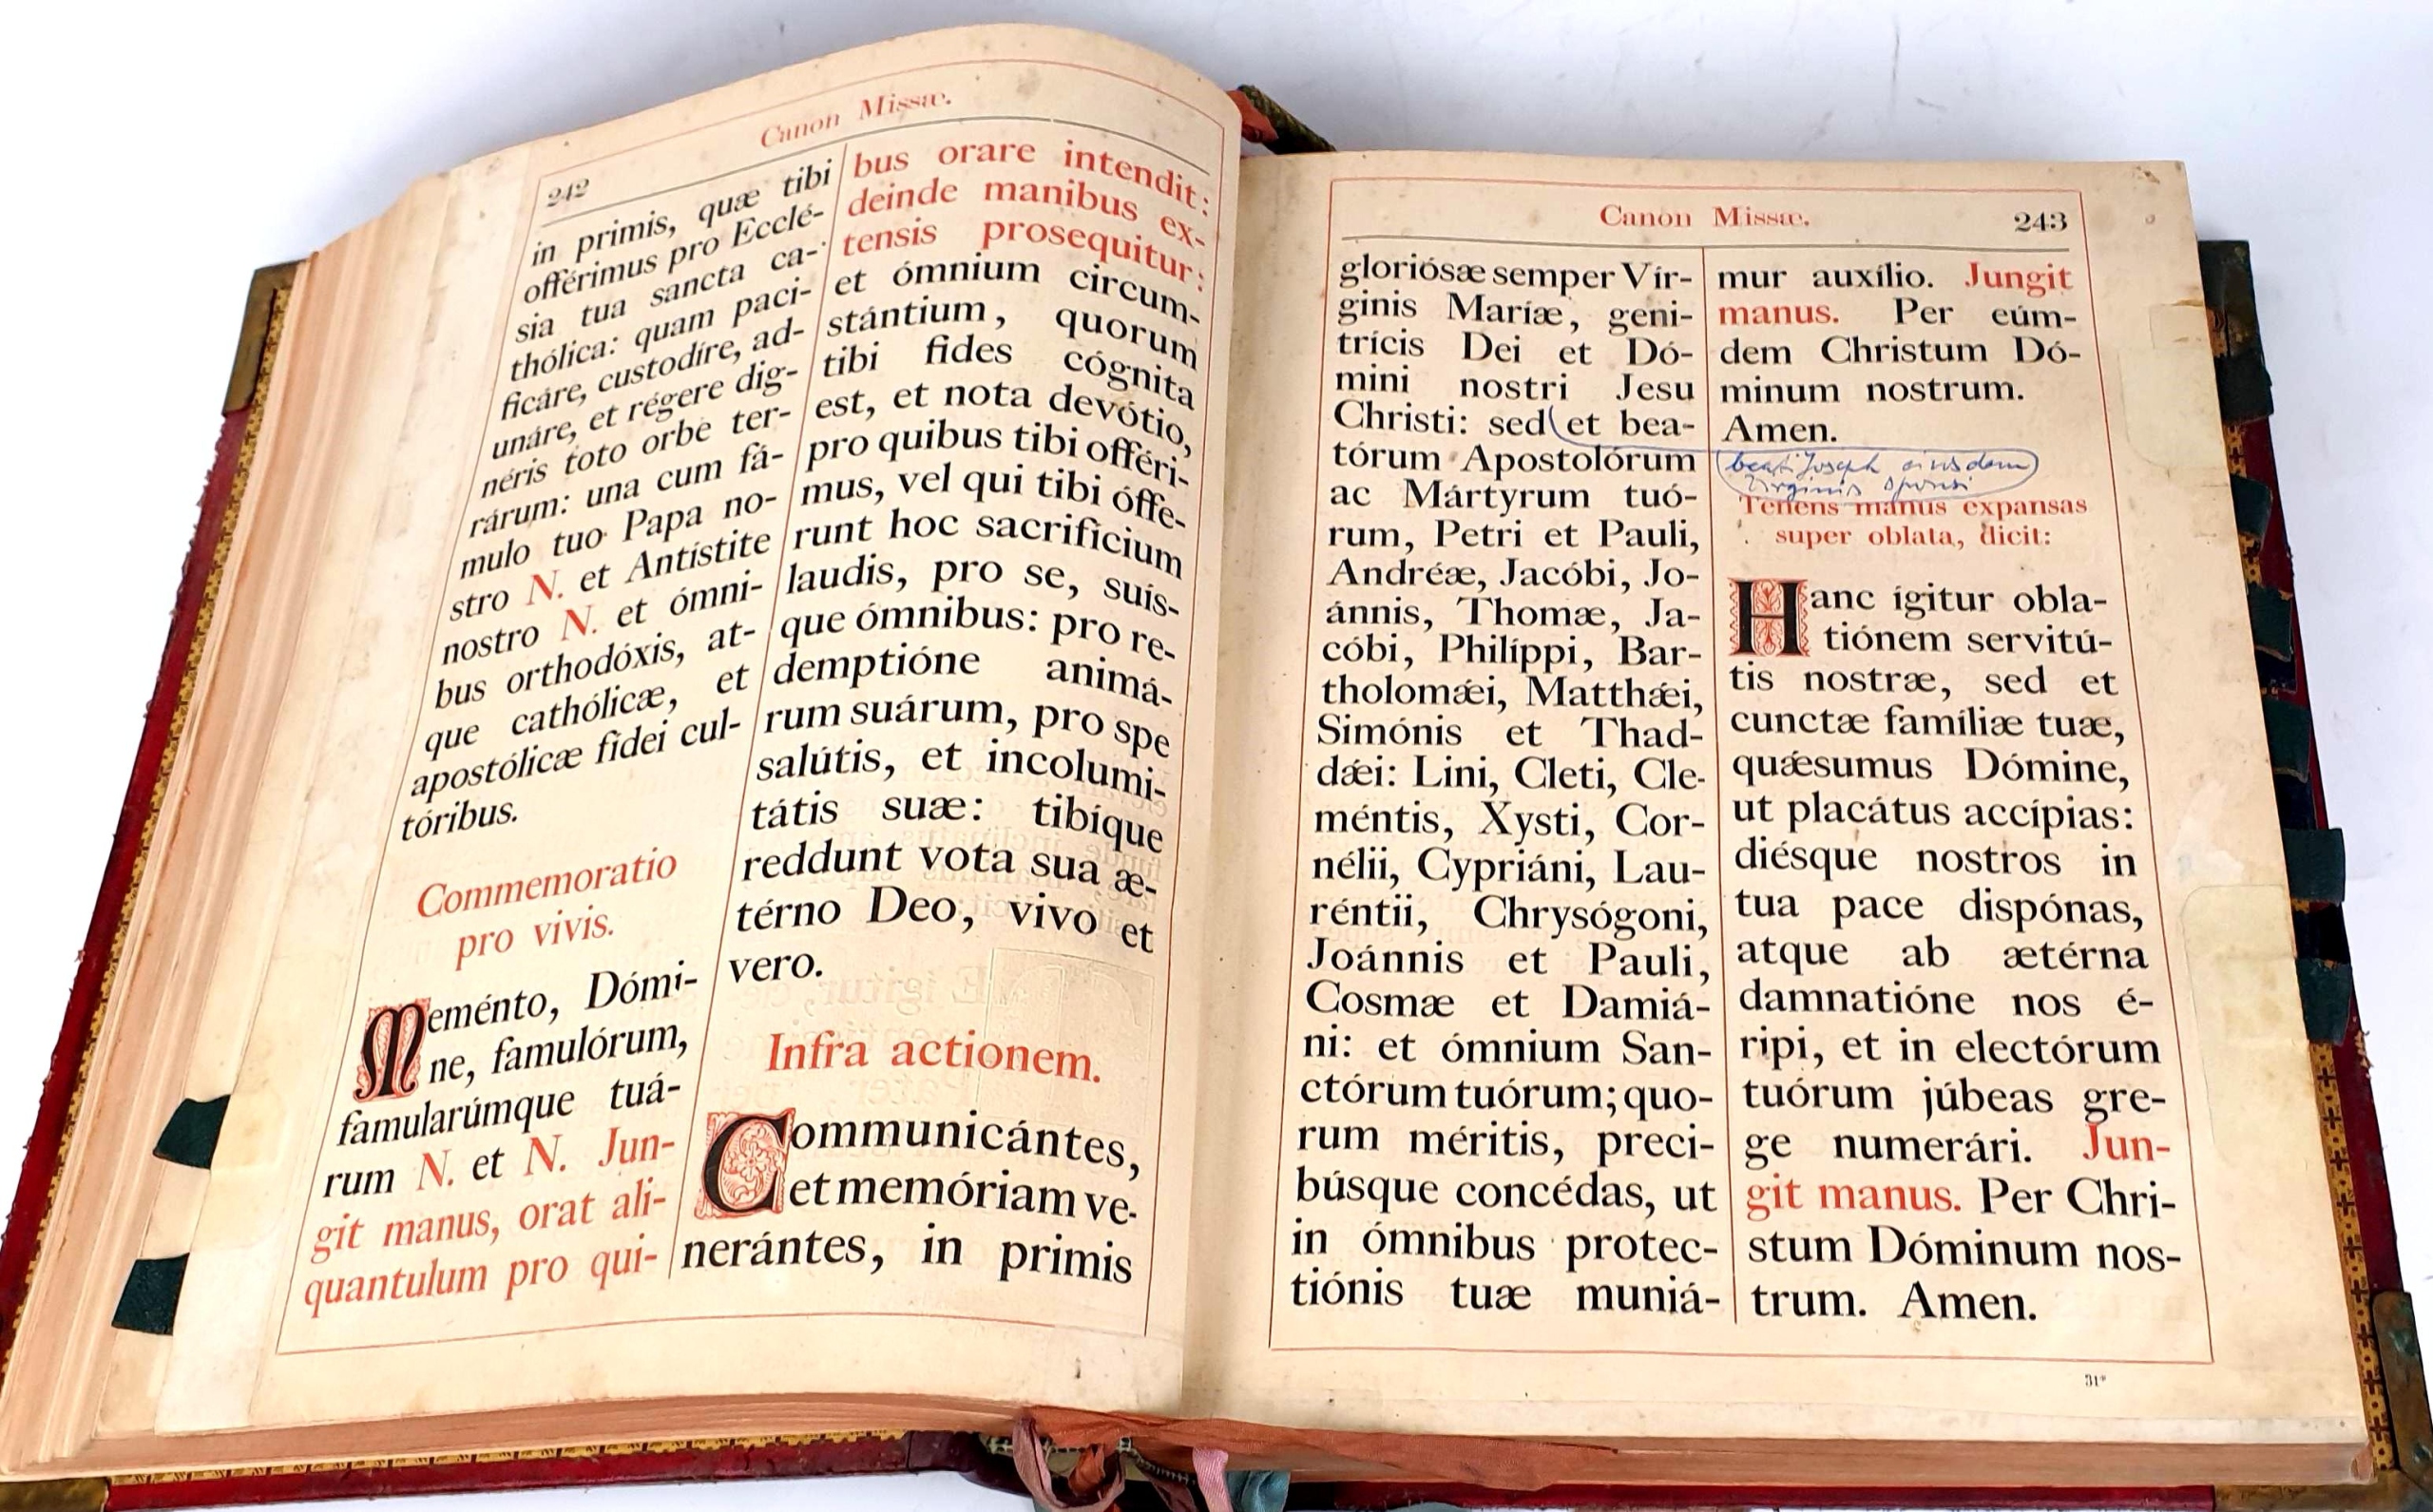 242
Canon Missæ.
in primis, quæ tibi
offérimus pro Ecclé-
sia tua sancta ca-
thólica: quam paci-
ficáre, custodíre, ad-
unáre, et régere dig-
néris toto orbe ter-
rárum: una cum fá-
mulo tuo Papa no-
stro N. et Antístite
nostro N. et ómni-
bus orthodóxis, at-
que cathólicæ, et
apostólicæ fídei cul-
tóribus.
Commemoratio
pro vivis.
Meménto, Dómi-
ne, famulórum,
famularúmque tuá-
rum N. et N. Jun-
git manus, orat ali-
quantulum pro qui-
bus orare intendit:
deinde manibus ex-
tensis prosequitur:
et ómnium circum-
stántium, quorum
tibi fides cógnita
est, et nota devótio,
pro quibus tibi offéri-
mus, vel qui tibi óffe-
runt hoc sacrifícium
laudis, pro se, suís-
que ómnibus: pro re-
demptióne animá-
rum suárum, pro spe
salútis, et incolumi-
tátis suæ: tibíque
reddunt vota sua æ-
térno Deo, vivo et
vero.
Infra actionem.
Communicántes,
et memóriam ve-
nerántes, in primis
Canon Missæ.
243
gloriósæ semper Vír-
ginis Maríæ, geni-
trícis Dei et Dó-
mini nostri Jesu
Christi: sed et bea-
tórum Apostolórum
ac Mártyrum tuó-
rum, Petri et Pauli,
Andréæ, Jacóbi, Jo-
ánnis, Thomæ, Ja-
cóbi, Philíppi, Bar-
tholomǽi, Matthǽi,
Simónis et Thad-
dǽi: Lini, Cleti, Cle-
méntis, Xysti, Cor-
nélii, Cypriáni, Lau-
réntii, Chrysógoni,
Joánnis et Pauli,
Cosmæ et Damiá-
ni: et ómnium San-
ctórum tuórum; quo-
rum méritis, preci-
búsque concédas, ut
in ómnibus protec-
tiónis tuæ muniá-
mur auxílio. Jungit
manus. Per eúm-
dem Christum Dó-
minum nostrum.
Amen.
beati Joseph eiusdem
Virginis sponsi
Tenens manus expansas
super oblata, dicit:
Hanc ígitur obla-
tiónem servitú-
tis nostræ, sed et
cunctæ famíliæ tuæ,
quǽsumus Dómine,
ut placátus accípias:
diésque nostros in
tua pace dispónas,
atque ab ætérna
damnatióne nos é-
ripi, et in electórum
tuórum júbeas gre-
ge numerári. Jun-
git manus. Per Chri-
stum Dóminum nos-
trum. Amen.
31*